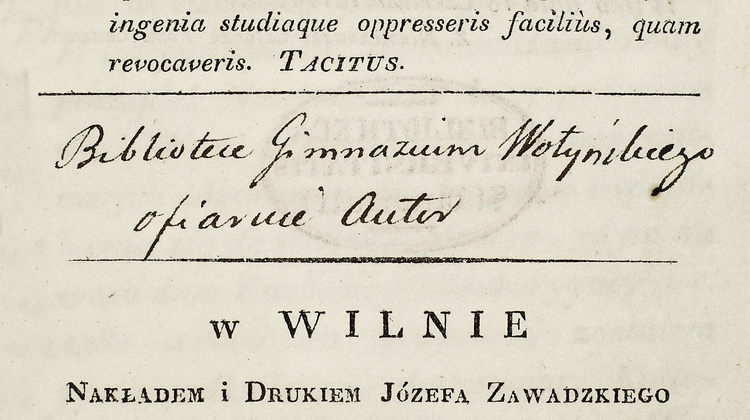 ingenia studiaque oppresseris facilius, quam
revocaveris. TACITUS.
Bibliotece Gimnazium Wołyńskiego
ofiaruie Autor
w WILNIE
NAKŁADEM i DRUKIEM JÓZEFA ZAWADZKIEGO